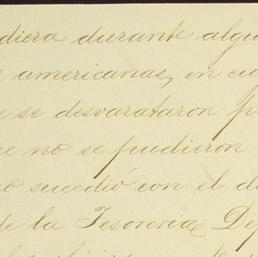 diera durante algu
americanas, en cu
se desvarataron p
no se pudieron
no sucedió con el d
de la Tesoreria De